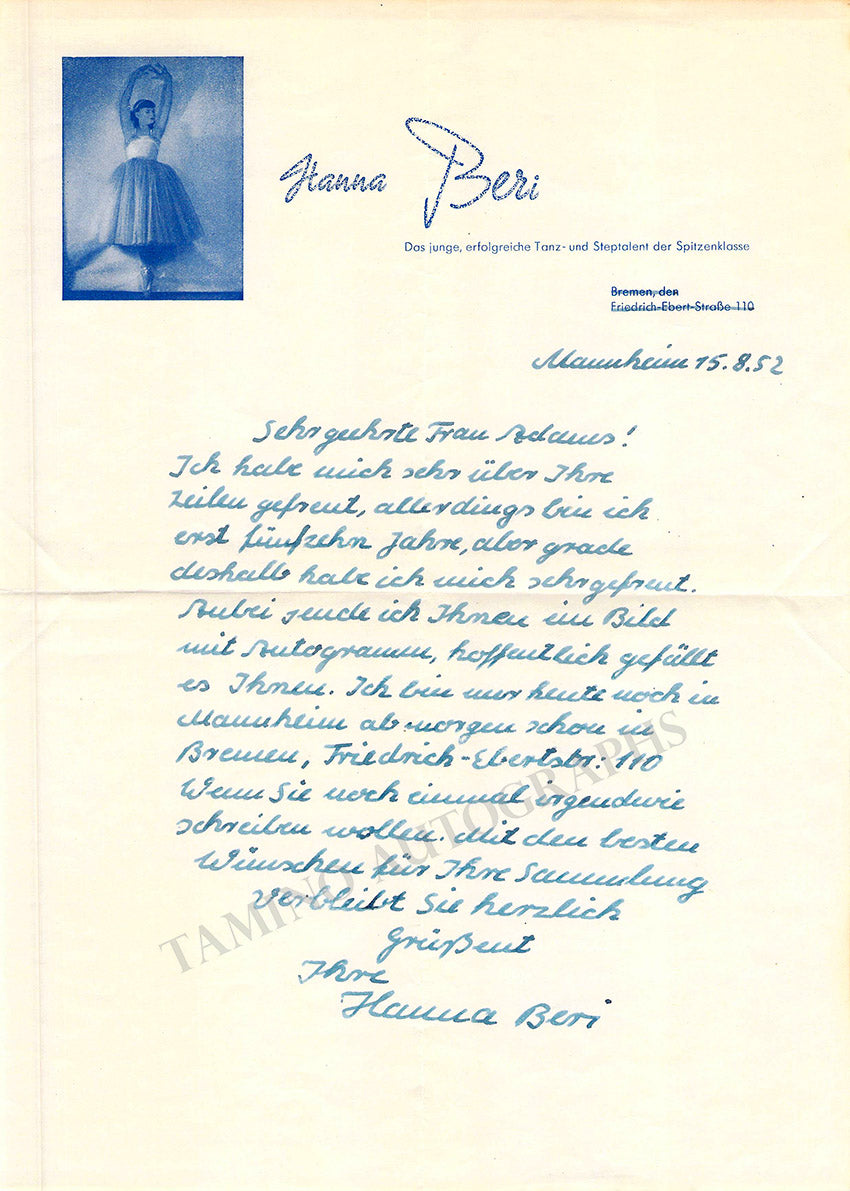 Hanna Beri
Das junge, erfolgreiche Tanz- und Steptalent der Spitzenklasse
Bremen, den
Friedrich-Ebert-Straße 110
Mannheim 15.8.52
Sehr geehrte Frau Adams!
Ich habe mich sehr über Ihre
Zeilen gefreut, allerdings bin ich
erst fünfzehn Jahre, aber grade
deshalb habe ich mich sehr gefreut.
Anbei sende ich Ihnen ein Bild
mit Autogramm, hoffentlich gefällt
es Ihnen. Ich bin nur heute noch in
Mannheim ab morgen schon in
Bremen, Friedrich-Ebertstr. 110
Wenn Sie noch einmal irgendwie
schreiben wollen. Mit den besten
Wünschen für Ihre Sammlung
Verbleibt Sie herzlich
Grüßent
Ihre
Hanna Beri
TAMINO AUTOGRAPHS